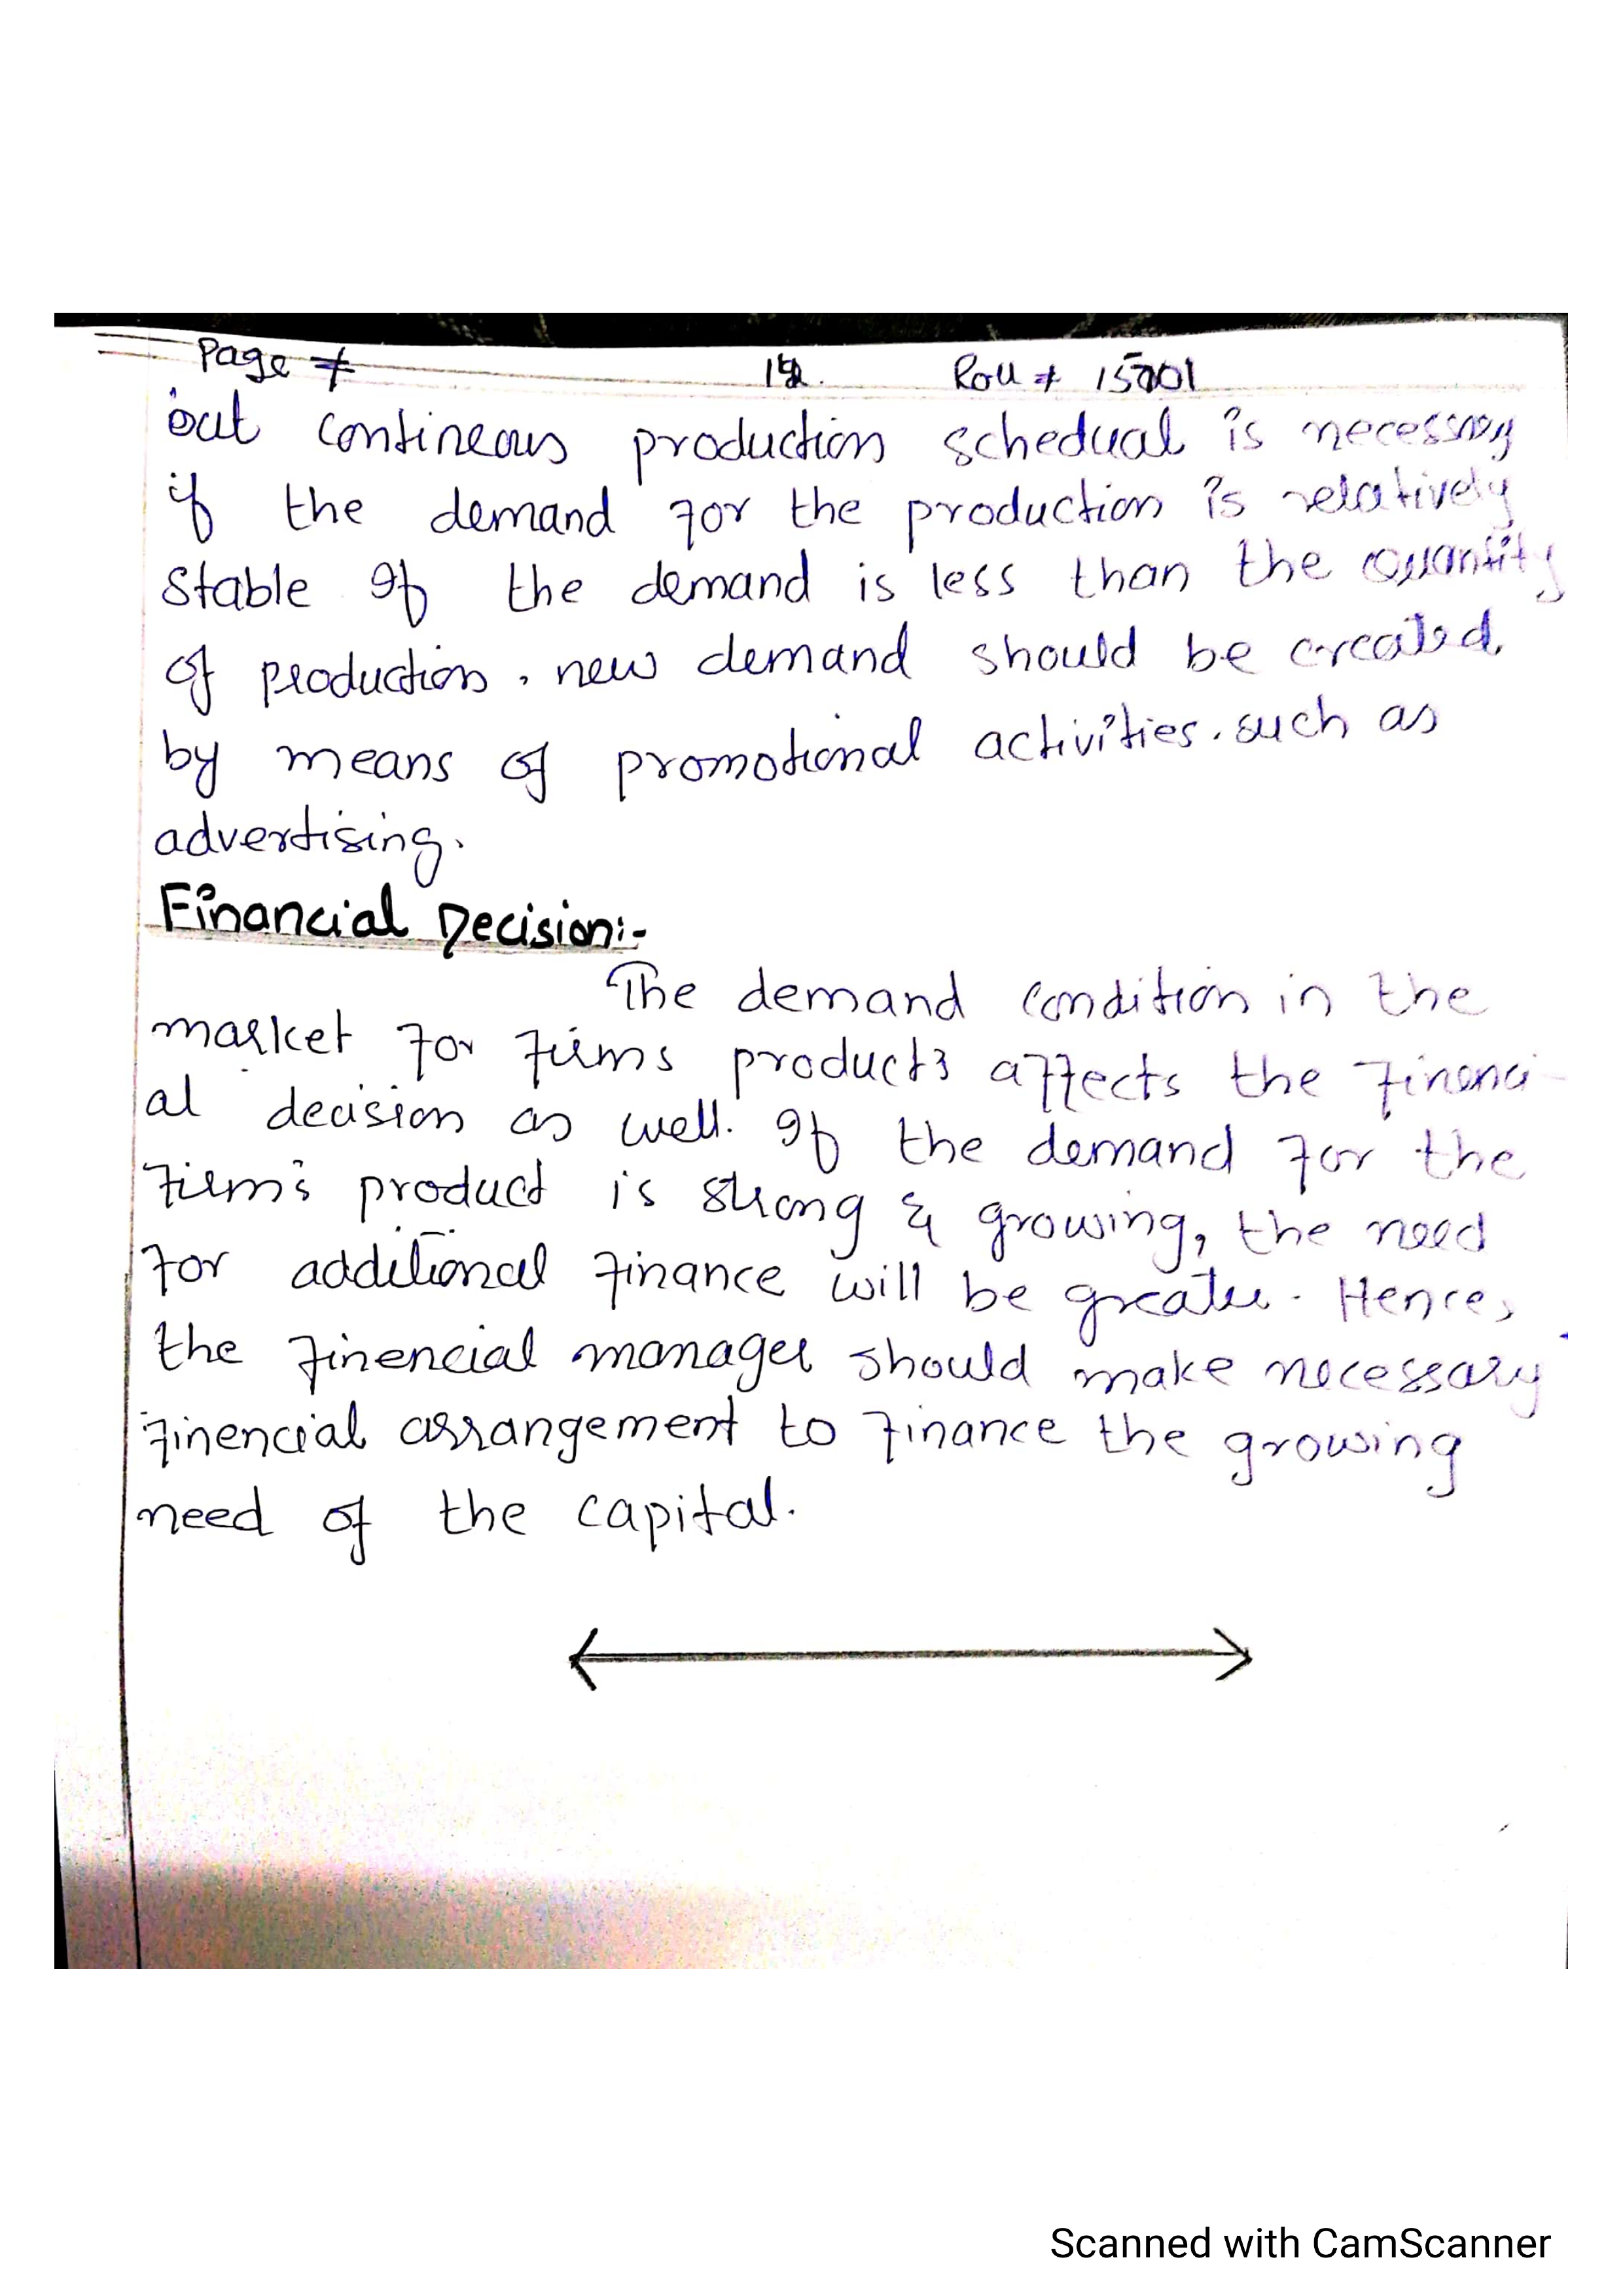 Page # 12. Roll # 15701
but contineous production schedual is necessary
if the demand for the production is relatively
stable If the demand is less than the Quantity
of production, new demand should be created,
by means of promotional activities, such as
advertising.
Financial Decision:-
The demand condition in the
market for firms products affects the financi-
al decision as well. If the demand for the
firm's product is strong & growing, the need
for additional finance will be greater. Hence,
the finencial manager should make necessary
finencial arrangement to finance the growing
need of the capital.
Scanned with CamScanner